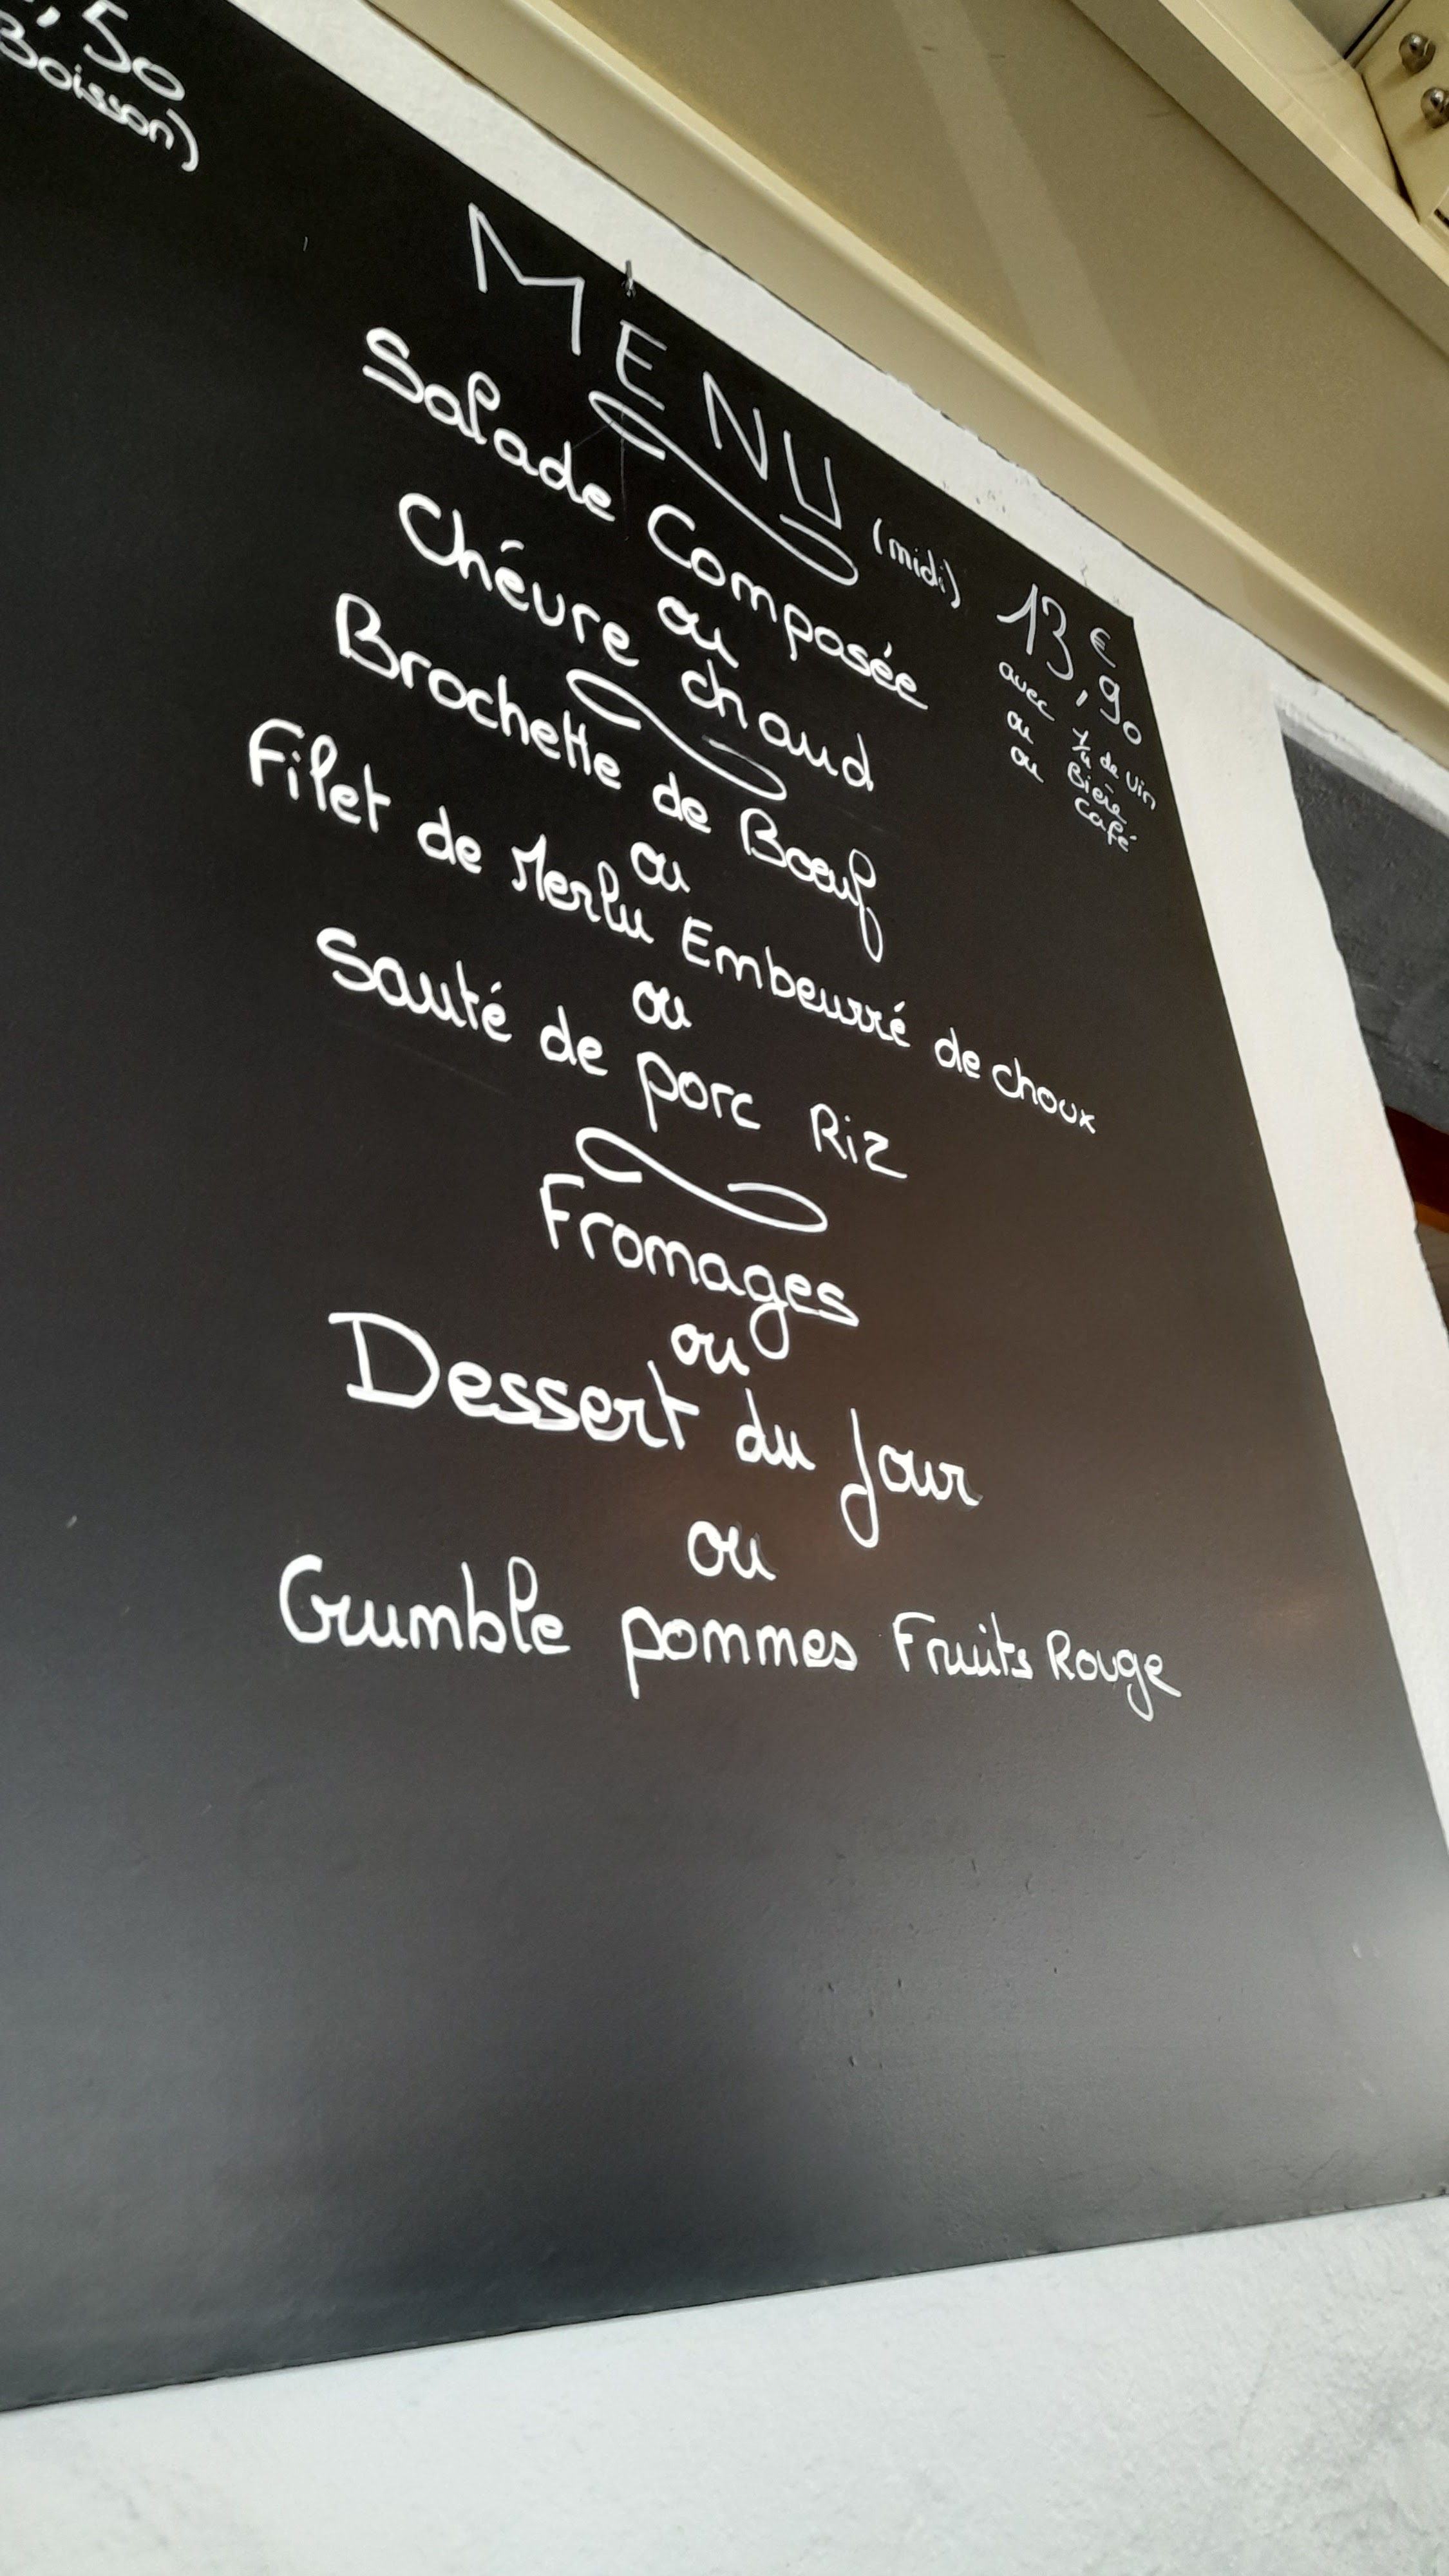 ,50
Boisson)
MENU (midi) 13€,90
avec ¼ de vin
ou Bière
ou Café
Salade Composée
ou
Chévre chaud
Brochette de Bœuf
ou
Filet de Merlu Embeurré de choux
ou
Sauté de porc Riz
Fromages
ou
Dessert du jour
ou
Crumble pommes Fruits Rouge